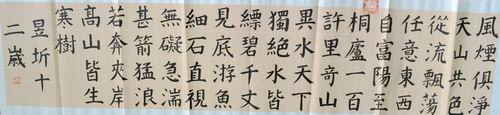 風煙俱淨
天山共色
從流飄蕩
任意東西
自富陽至
桐廬一百
許里奇山
異水天下
獨絕水皆
縹碧千丈
見底游魚
細石直視
無礙急湍
甚箭猛浪
若奔夾岸
高山皆生
寒樹
昱圻十
二歲